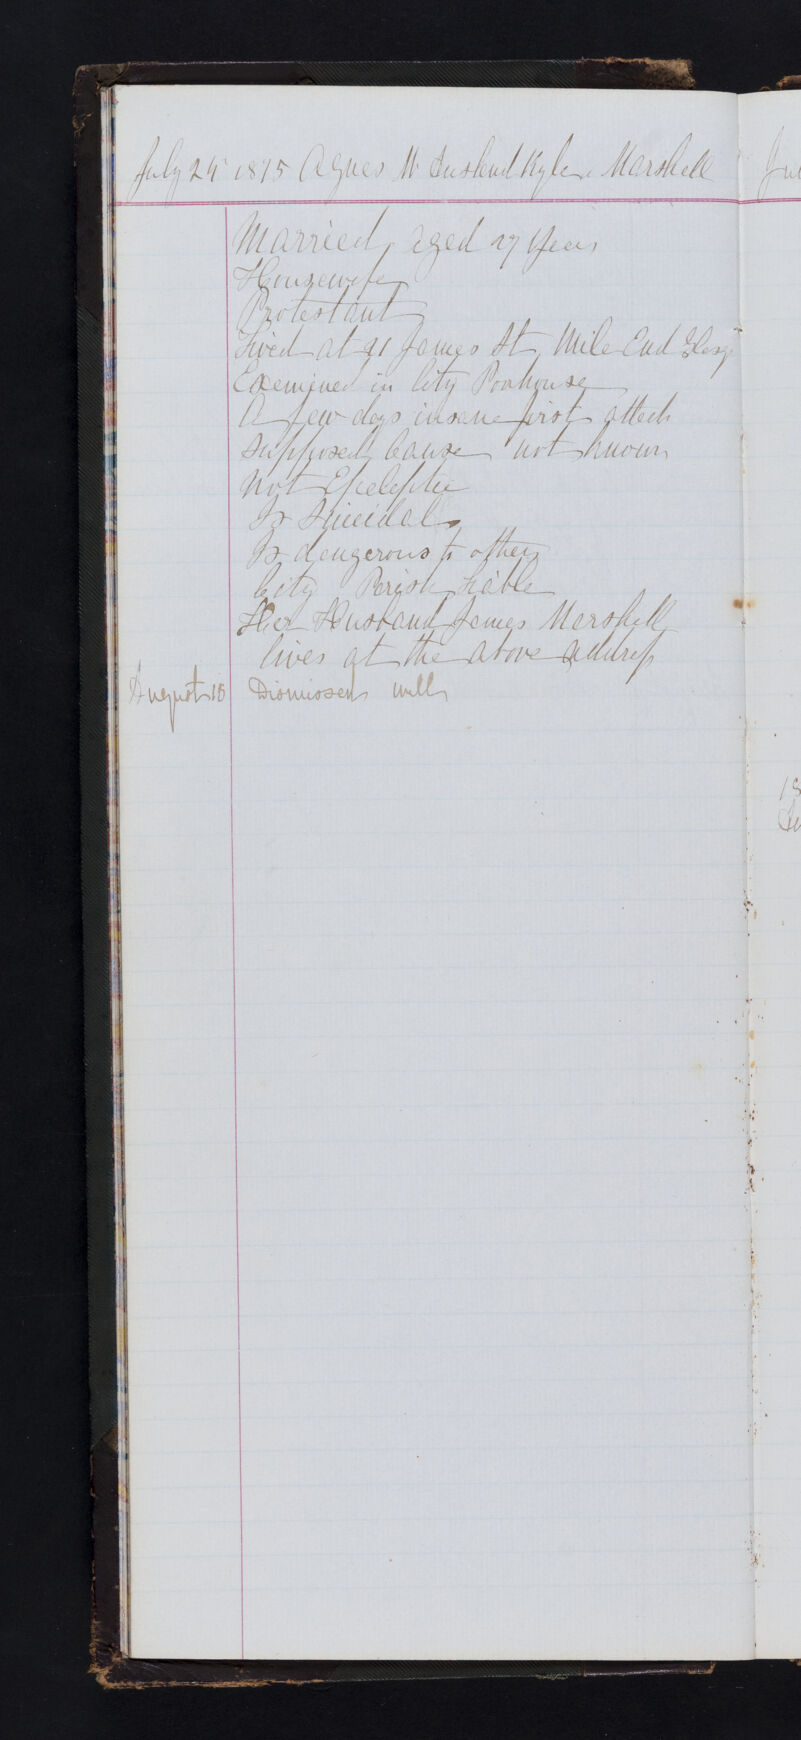 July 24 1875 Agnes Mc Ausland Kyle Marshall
Married, aged 27 Years
Housewife
Protestant
Lived at 21 James St, Mile End Glasg
Examined in City Poorhouse
A few days insane first attack
Supposed Cause not known
Not Epileptic
Is Suicidal
Is dangerous to others
City Parish Liable
Her Husband James Marshall
lives at the above address
August 18 Dismissed well